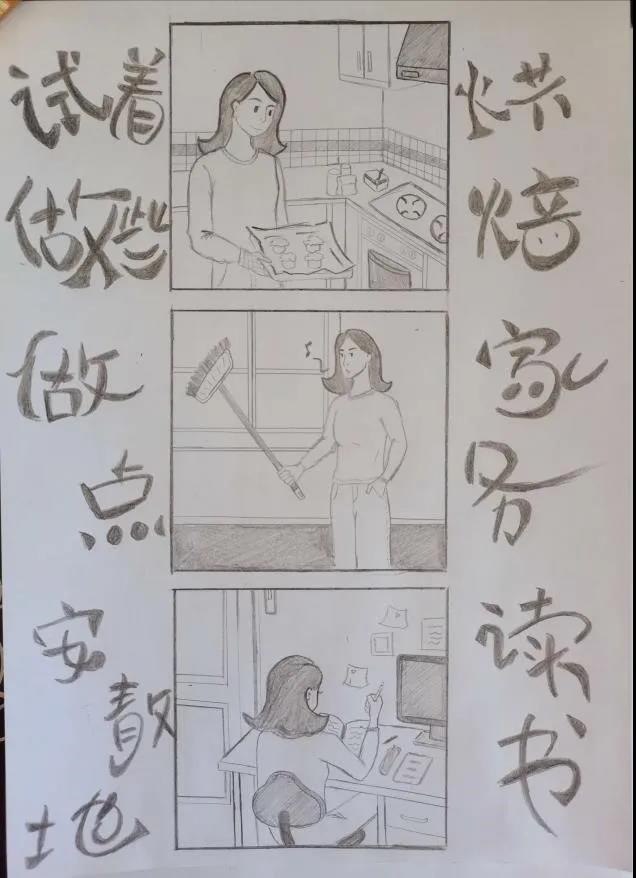 试着
做些
烘
焙
做
点
家
务
安
地
读
书